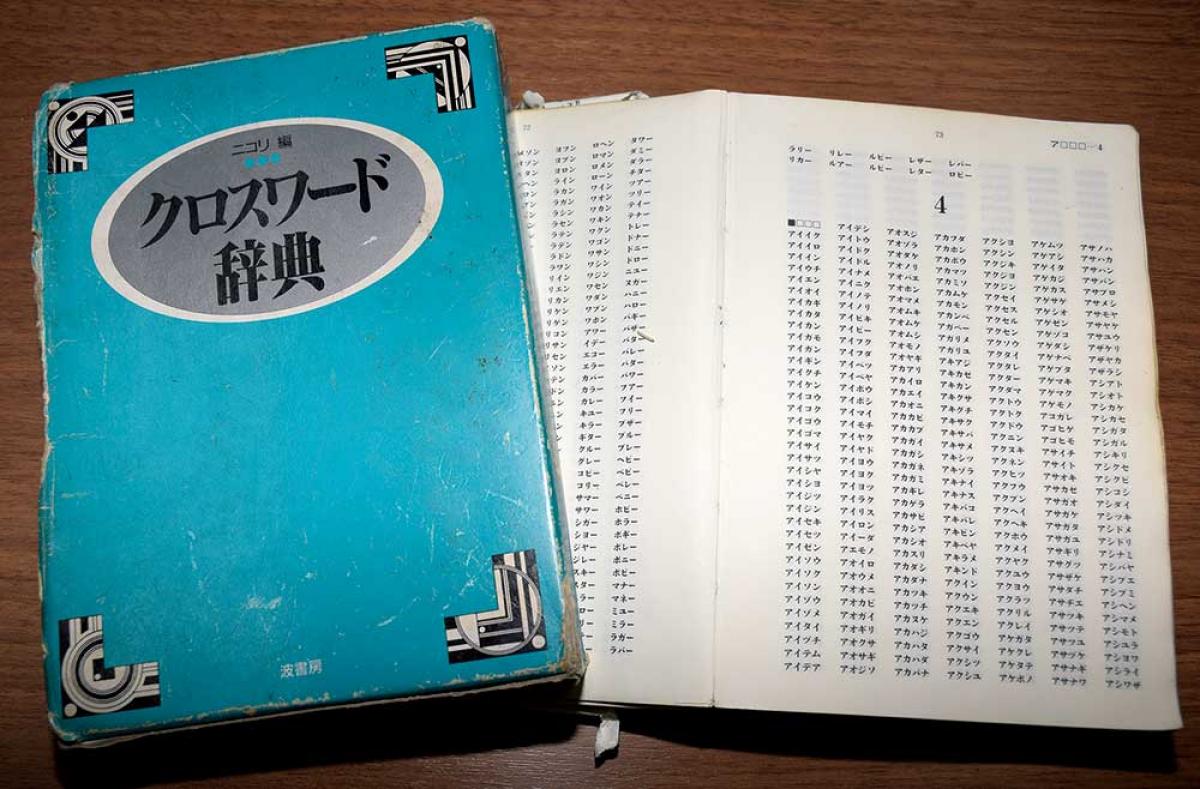 ニコリ 編
クロスワード
辞典
波書房
72
ヨブン ヨボウ ヨロン ライン ラカン ラガン ラシン ラセン ラテン
ロヘン ロマン ロメン ローン ワイン ワオン ワカン ワキン ワクン ワゴン ワサン ワシン ワジン ワセン ワダン ワブン ワホン アワー イデー エコー エラー カバー カラー カレー キユー ギター クルー グレー コピー コリー サマー サワー シガー ショー ジャー ジレー
タワー ダミー ダラー チター ツアー ツリー テイー テナー トレー ドナー ドニー ドロー ニユー ヌガー ハニー ハロー バギー バザー バター バレー パター パワー フアー フイー フリー ブザー ブルー プレー ヘビー ベビー ベリー ペニー ホビー ホラー ボギー ボレー ポニー ポピー マナー マネー ミユー ミラー ラガー ラバー
73
ア□□□―4
ラリー リレー ルビー レザー レバー
リカー ルアー ルピー レター ロビー
4
■□□□
アイイク アイイロ アイイン アイウチ アイエン アイオイ アイカギ アイカタ アイカモ アイカン アイキン アイクチ アイケン アイコウ アイコク アイゴウ アイゴマ アイサイ アイサツ アイシヤ アイシヨ アイジツ アイジン アイセキ アイセツ アイゼン アイソク アイソン アイゾウ アイゾメ アイタイ アイヅチ アイテム アイデア
アイデシ アイトウ アイドク アイドル アイナメ アイニク アイノテ アイノリ アイビキ アイビー アイフク アイフダ アイベツ アイベヤ アイボウ アイボシ アイマイ アイモチ アイヤク アイヤド アイヨウ アイヨク アイヨツ アイラク アイリス アイロン アイーダ アエモノ アオイロ アオウメ アオオニ アオカビ アオガイ アオギリ アオクサ アオサギ アオジソ
アオスジ アオゾラ アオダケ アオノリ アオバエ アオホン アオマメ アオムキ アオムケ アオムシ アオモノ アオヤキ アカアリ アカイロ アカエイ アカオニ アカカビ アカカブ アカガイ アカガシ アカガネ アカガミ アカギレ アカゲラ アカサビ アカシア アカシオ アカスリ アカダシ アカダナ アカツキ アカツチ アカヌケ アカハジ アカハタ アカハダ アカバナ
アカフダ アカホン アカボウ アカマツ アカミソ アカムケ アカモン アカンベ アガペー アガリメ アガリユ アキアジ アキカゼ アキカン アキクサ アキグチ アキサク アキサバ アキサメ アキシツ アキゾラ アキナイ アキナス アキバコ アキバレ アキビン アキベヤ アキラメ アキンド アクイン アクウン アクエキ アクエン アクゴウ アクサイ アクシツ アクシユ
アクシヨ アクシン アクジキ アクジヨ アクジン アクセイ アクセス アクセル アクセン アクソウ アクタイ アクタレ アクター アクダマ アクトウ アクトク アクドウ アクニン アクヌキ アクネン アクヒツ アクフウ アクブン アクヘイ アクヘキ アクホウ アクメイ アクヤク アクユウ アクヨウ アクラツ アクリル アクレイ アケガタ アケクレ アケタテ アケボノ
アケムツ アゲアシ アゲイタ アゲカジ アゲカス アゲサゲ アゲシオ アゲゼン アゲゾコ アゲダシ アゲナベ アゲブタ アゲマキ アゲマク アゲモノ アコガレ アゴヒゲ アゴヒモ アサイチ アサイト アサオキ アサカゼ アサガオ アサガケ アサガタ アサガユ アサギリ アサグツ アサザケ アサダチ アサヂエ アサツキ アサツテ アサツユ アサヅケ アサナギ アサナワ
アサノハ アサハカ アサハン アサバン アサブロ アサメシ アサモヤ アサヤケ アサユウ アザケリ アザヤカ アザラシ アシアト アシオト アシカケ アシカセ アシガタ アシガル アシキリ アシクセ アシクビ アシコシ アシダイ アシツキ アシドメ アシドリ アシナミ アシバヤ アシブエ アシブミ アシヘン アシマメ アシモト アシユラ アシヨワ アシライ アシワザ